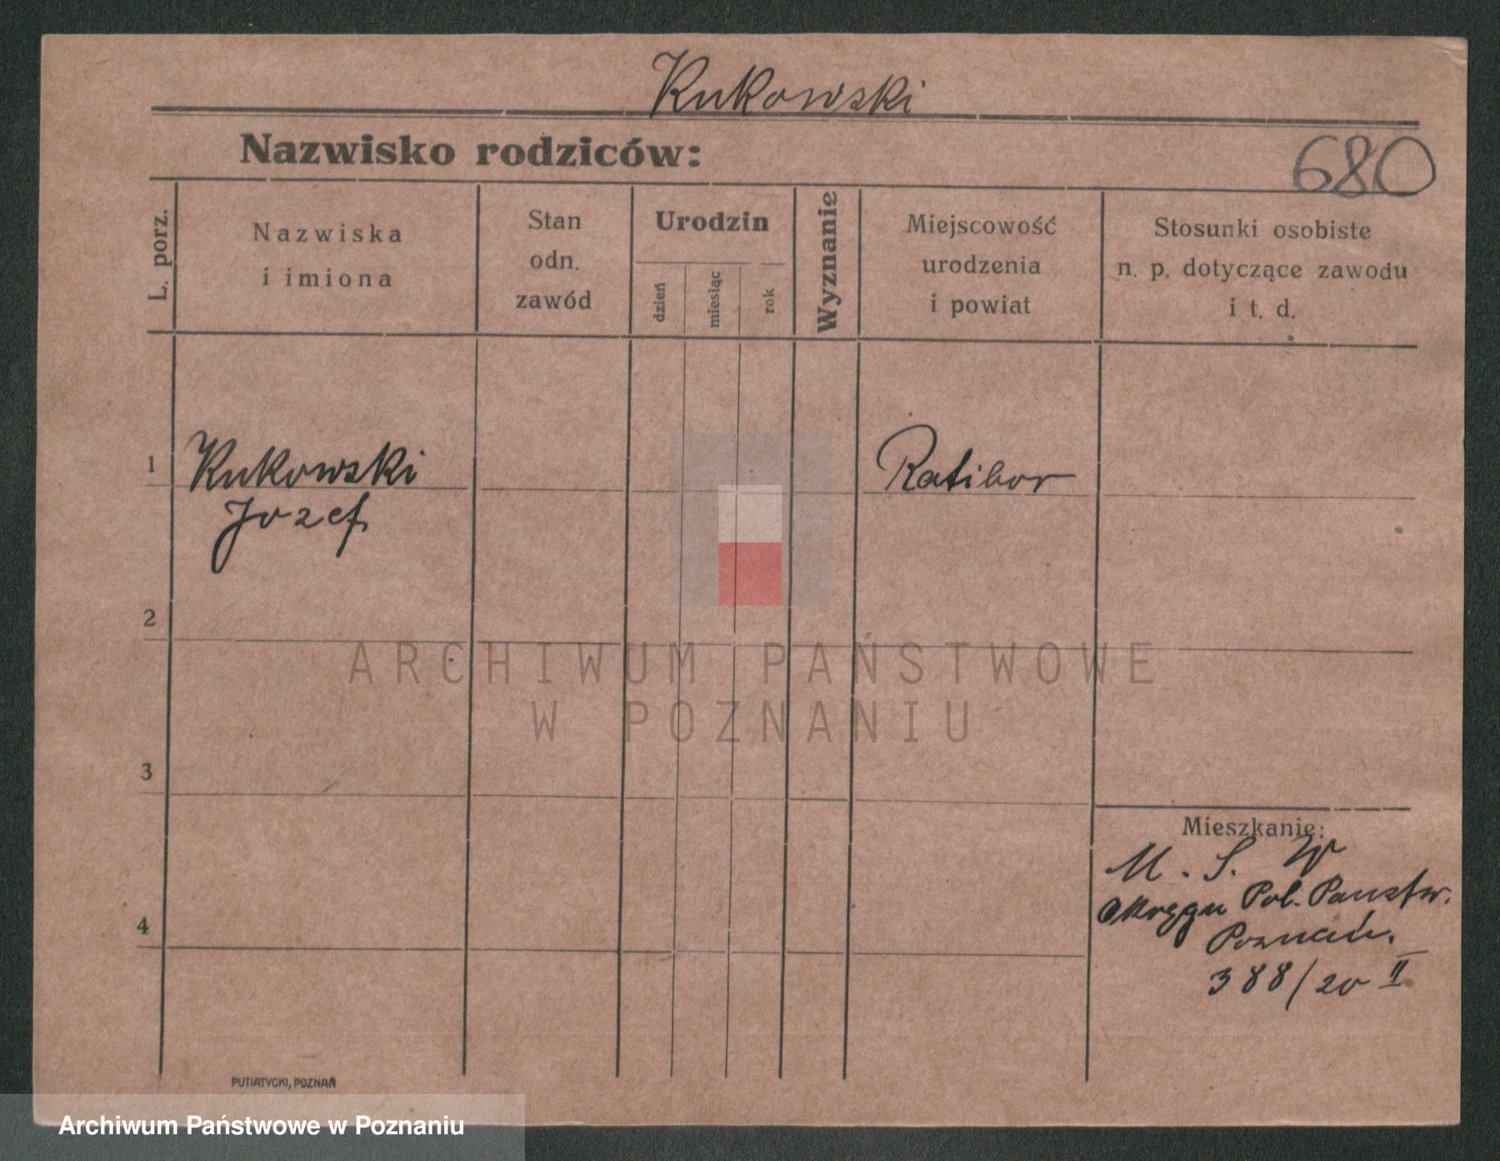 Kukowski
Nazwisko rodziców:
680
L. porz.
Nazwiska
i imiona
Stan
odn.
zawód
Urodzin
dzień
miesiąc
rok
Wyznanie
Miejscowość
urodzenia
i powiat
Stosunki osobiste
n. p. dotyczące zawodu
i t. d.
1
Kukowski
Jozef
Ratibor
2
ARCHIWUM PAŃSTWOWE
W POZNANIU
3
Mieszkanie:
M. S. W
Okręgu Pol. Państw.
Poznań.
388/20 II
4
PUTIATYCKI, POZNAŃ
Archiwum Państwowe w Poznaniu